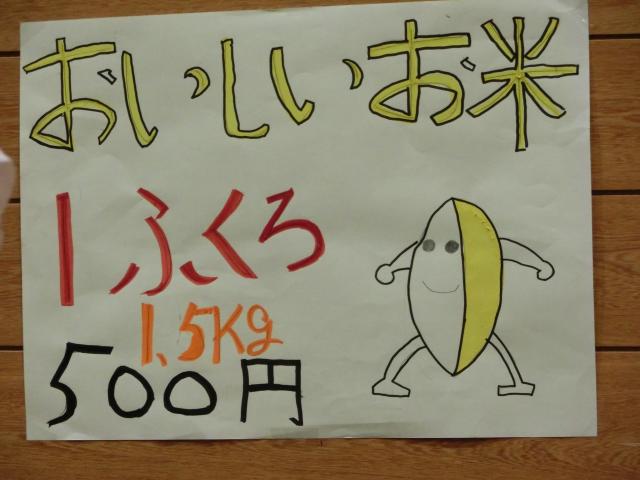 おいしいお米
1ふくろ
1.5Kg
500円